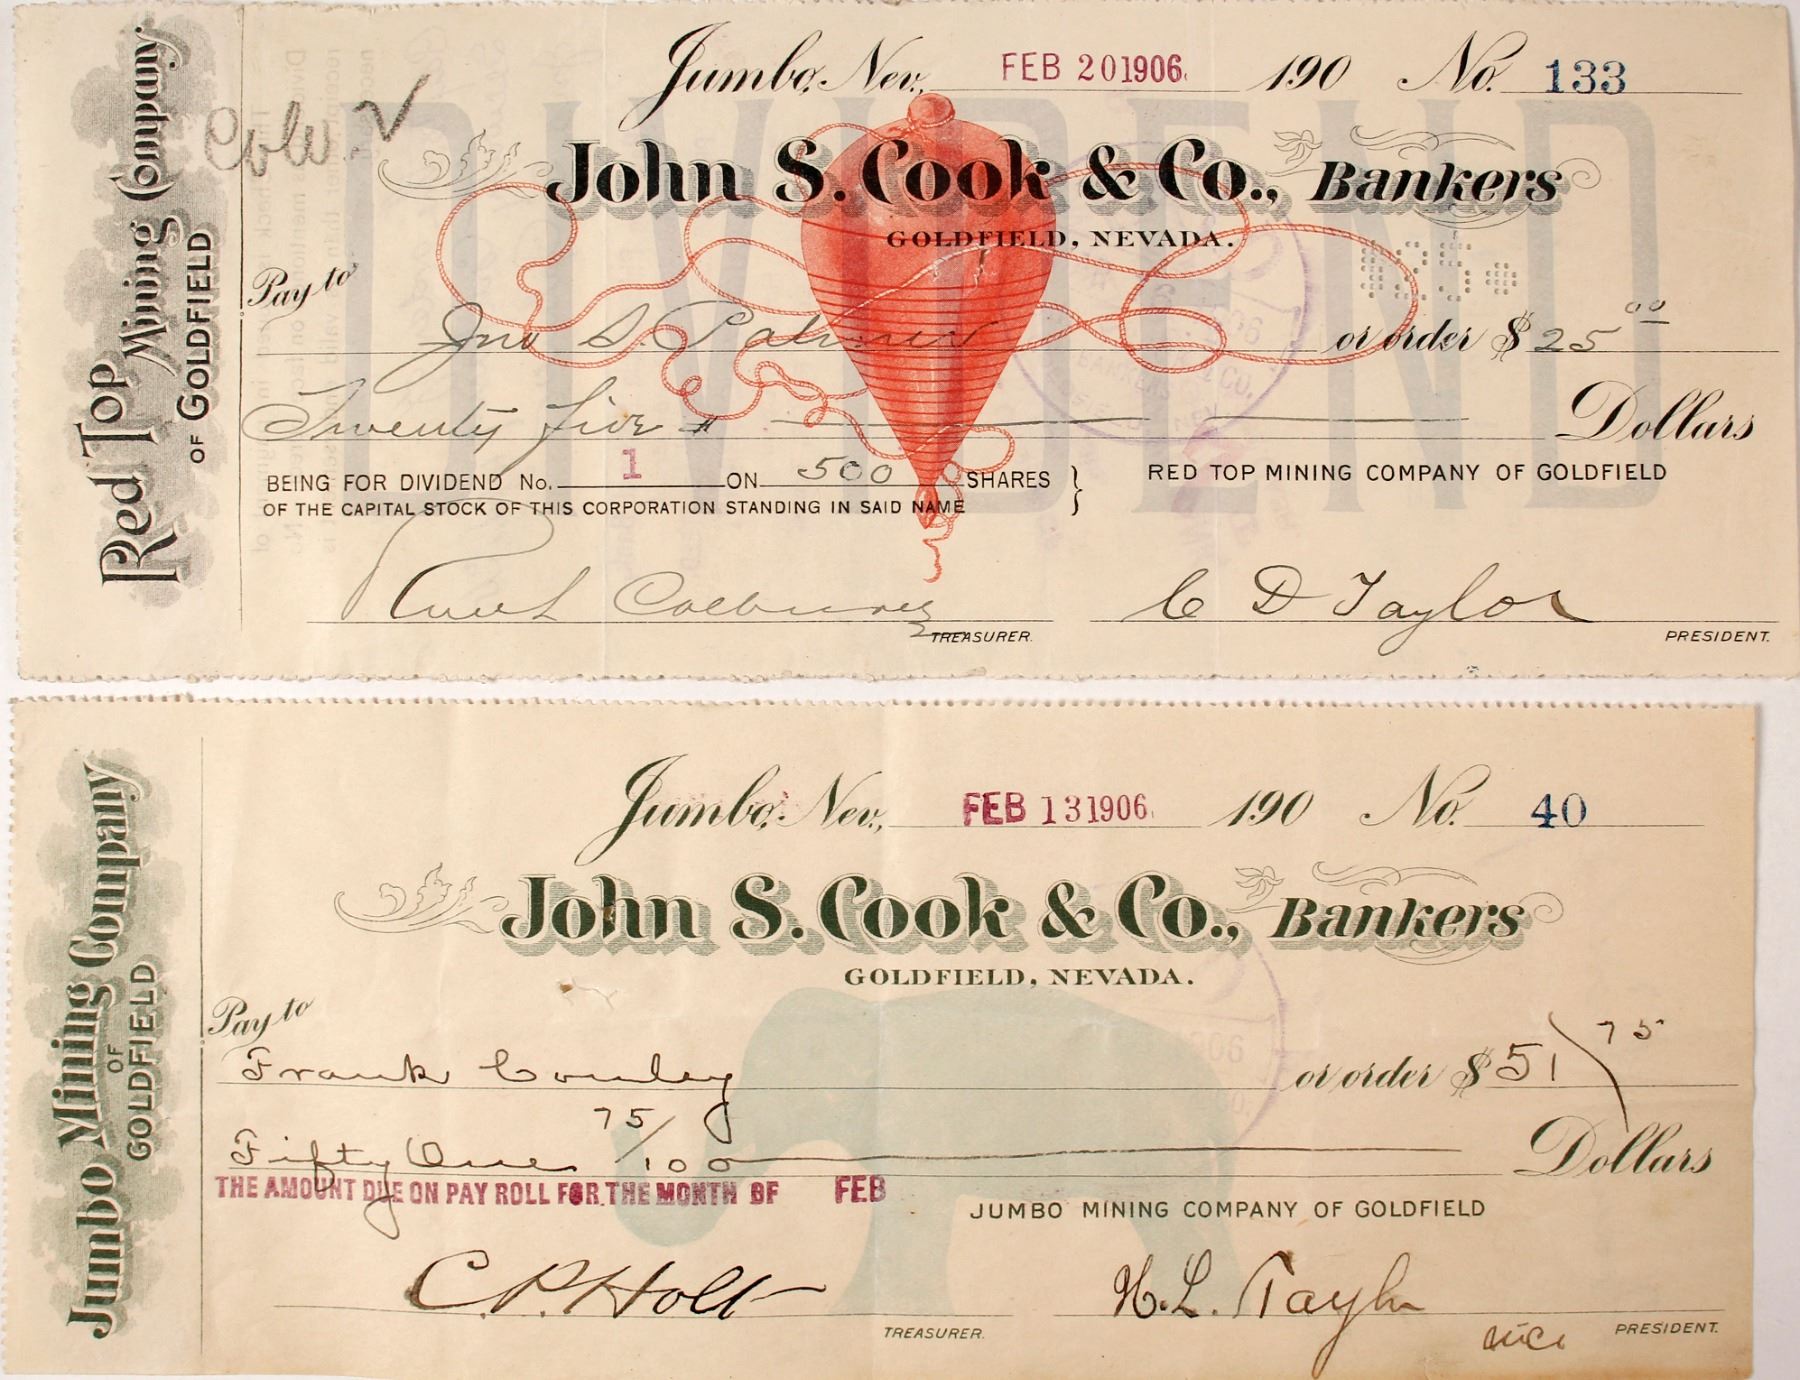 Red Top Mining Company
OF GOLDFIELD
Jumbo, Nev., FEB 20 1906. 190 No. 133
DIVIDEND
John S. Cook & Co., Bankers
GOLDFIELD, NEVADA.
$25
Pay to
Jno S Palmer or order $ 25 00
Twenty five Dollars
BEING FOR DIVIDEND No. 1 ON 500 SHARES } RED TOP MINING COMPANY OF GOLDFIELD
OF THE CAPITAL STOCK OF THIS CORPORATION STANDING IN SAID NAME
C D Taylor
TREASURER. PRESIDENT.
Jumbo Mining Company
OF
GOLDFIELD
Jumbo, Nev., FEB 13 1906. 190 No. 40
John S. Cook & Co., Bankers
GOLDFIELD, NEVADA.
Pay to
Frank Conley or order $ 51 75
Fifty One 75/100 Dollars
THE AMOUNT DUE ON PAY ROLL FOR THE MONTH OF FEB
JUMBO MINING COMPANY OF GOLDFIELD
C.P. Holt H.L. Taylor
TREASURER. PRESIDENT.